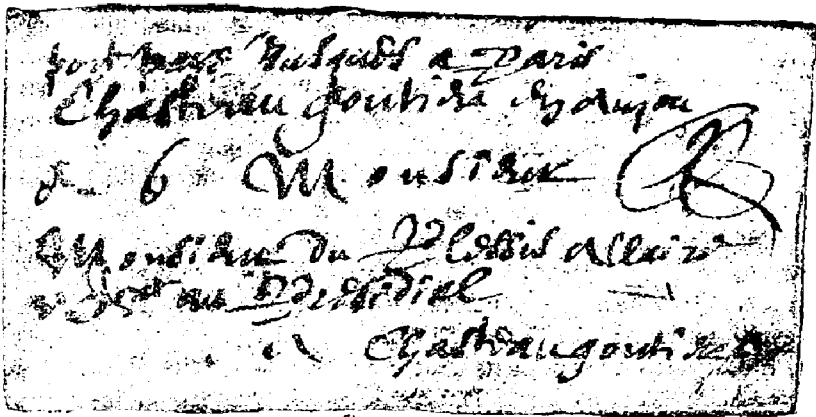 port paye Jusques a Paris
Chasteau gontier en anjou
de 6 Monsieur
Monsieur Du Plessis allaire
au Presidial
a Chasteaugontier